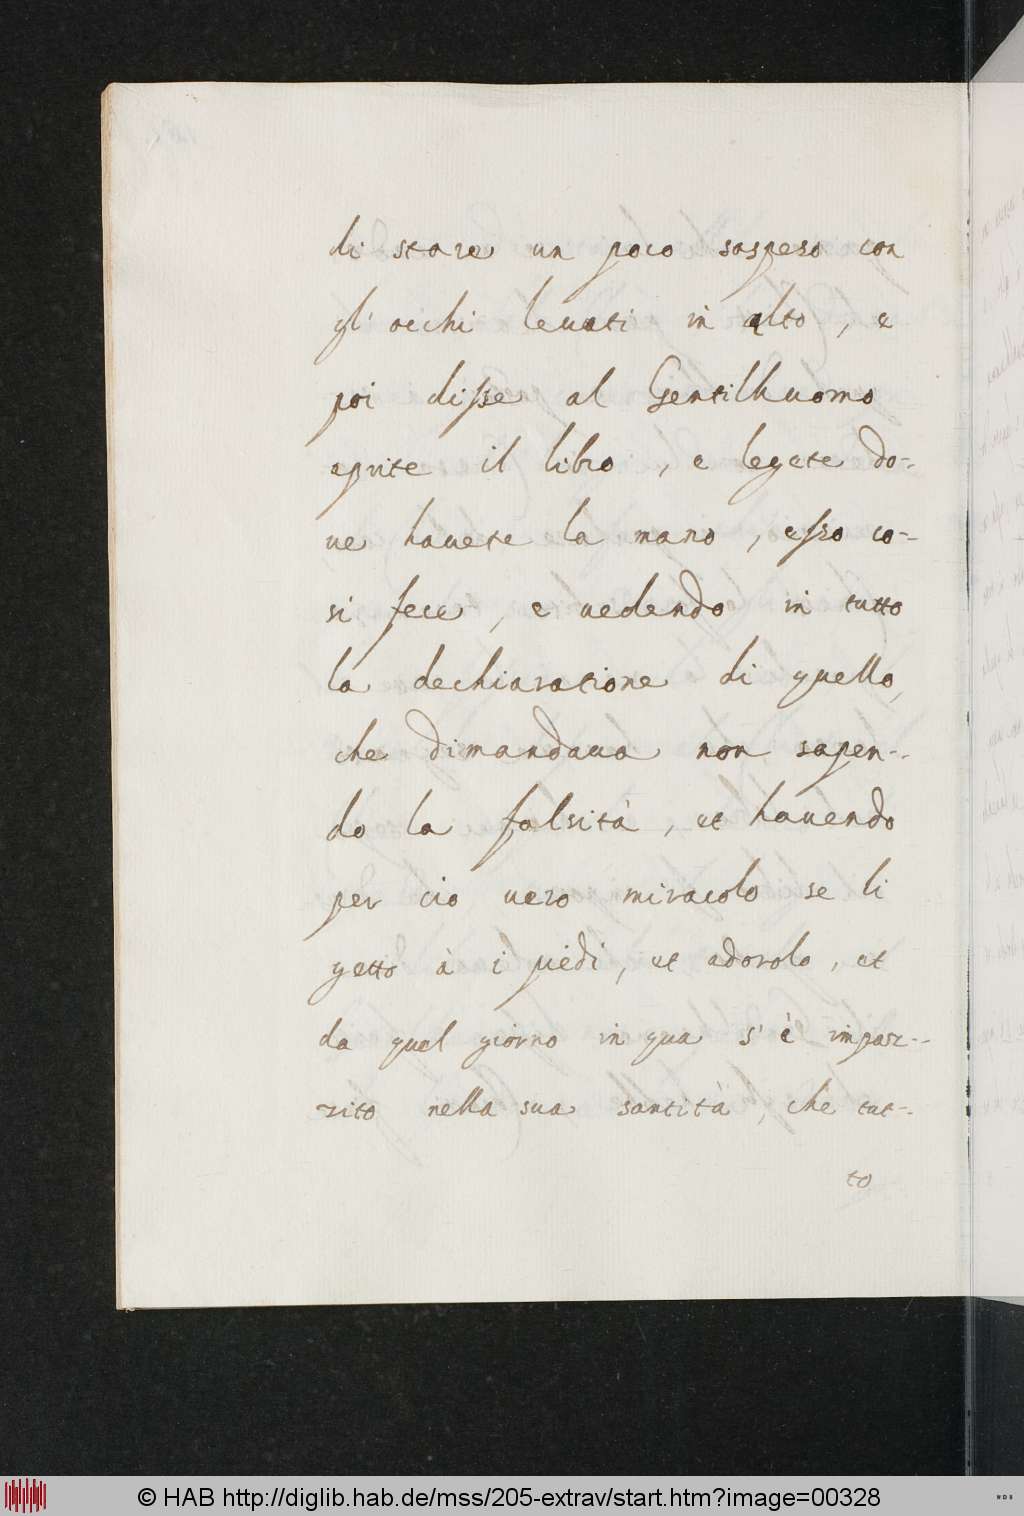 di stare un poco sospeso con
gl' occhi leuati in alto, e
poi disse al Gentilhuomo
aprite il libro, e legete do-
ue hauete la mano, esso co-
si fece, e uedendo in tutto
la dechiaratione di quello,
che dimandaua non sapen-
do la falsità, et hauendo
per cio uero miracolo se li
gettò à i piedi, et adorolo, et
da quel giorno in qua s'è
rito nella sua santità, che tut-
to
© HAB http://diglib.hab.de/mss/205-extrav/start.htm?image=00328